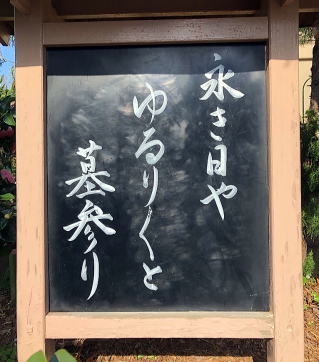 永き日や
ゆるりくと
墓参り